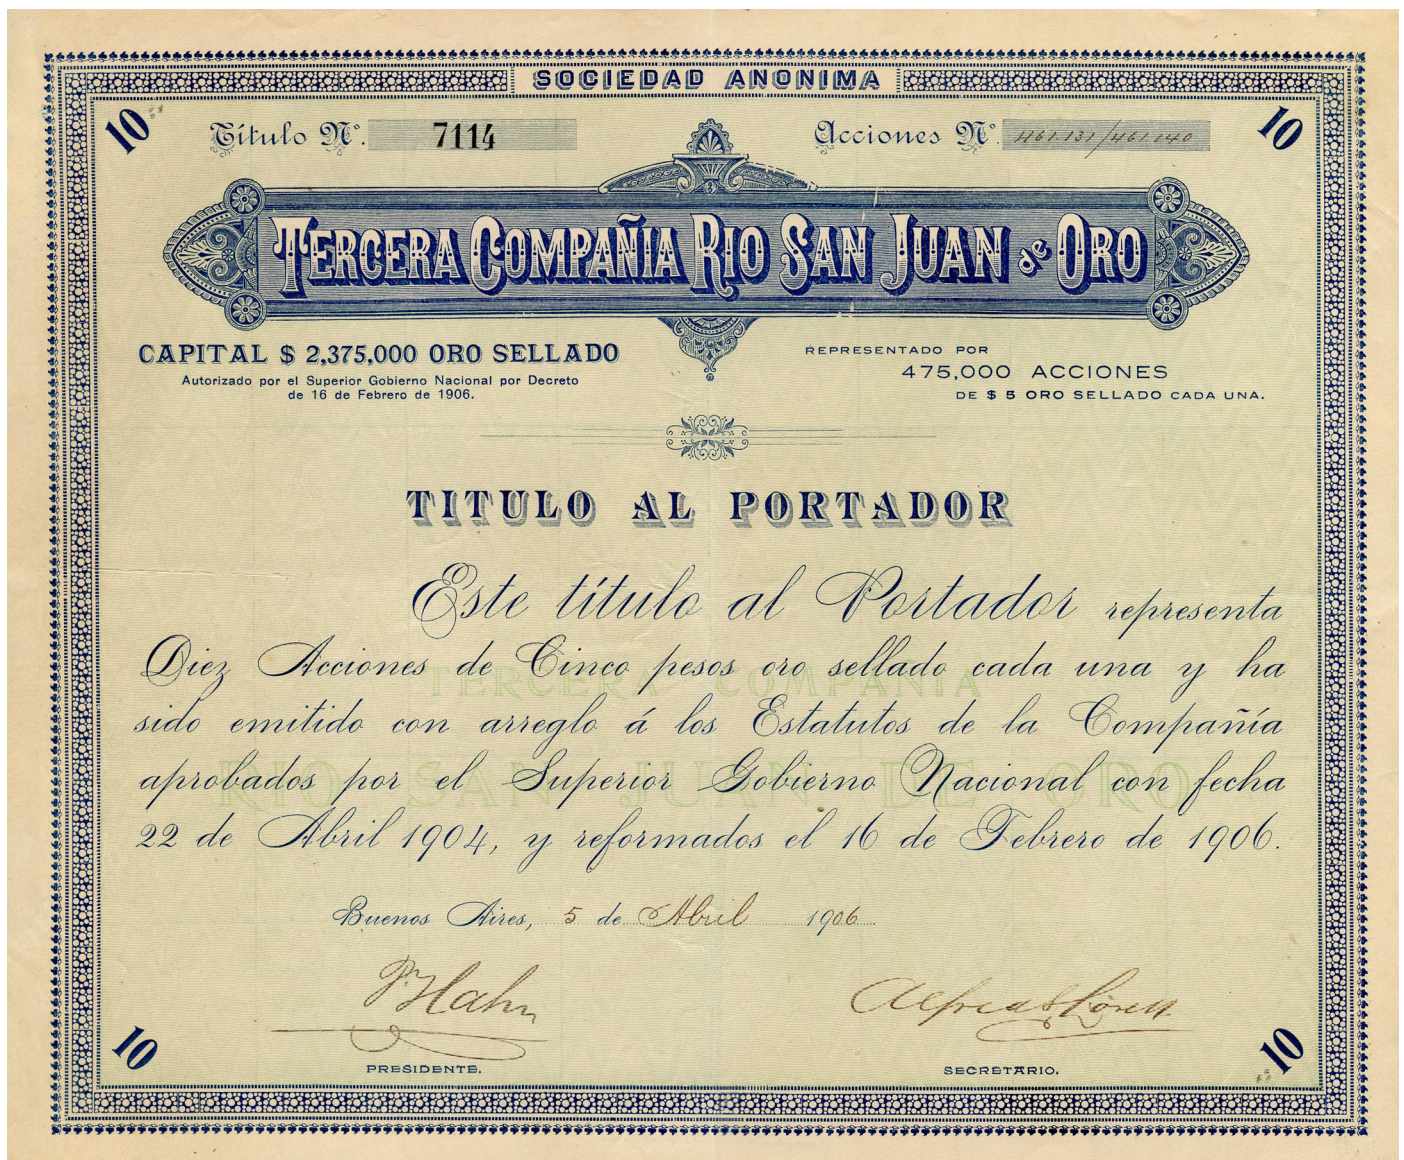 SOCIEDAD ANONIMA
10
Título Nº. 7114
Acciones Nº 461.131/461.140
10
TERCERA COMPAÑIA RIO SAN JUAN de ORO
CAPITAL $ 2,375,000 ORO SELLADO
Autorizado por el Superior Gobierno Nacional por Decreto
de 16 de Febrero de 1906.
REPRESENTADO POR
475,000 ACCIONES
DE $ 5 ORO SELLADO CADA UNA.
TITULO AL PORTADOR
Este título al Portador representa
Diez Acciones de Cinco pesos oro sellado cada una y ha
sido emitido con arreglo á los Estatutos de la Compañía
aprobados por el Superior Gobierno Nacional con fecha
22 de Abril 1904, y reformados el 16 de Febrero de 1906.
TERCERA COMPAÑIA
RIO SAN JUAN DE ORO
Buenos Aires, 5 de Abril 1906
Hahn
PRESIDENTE.
SECRETARIO.
10
10